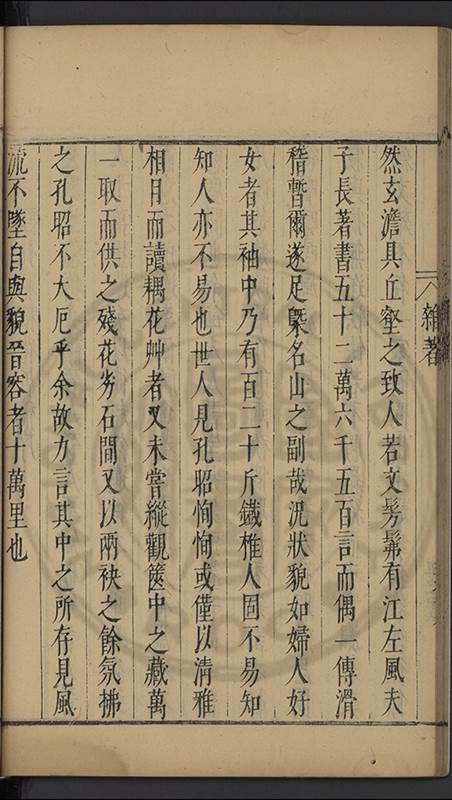 雜著
然玄澹具丘壑之致人若文髣髴有江左風夫
子長著書五十二萬六千五百言而偶一傳滑
稽暫爾遂足槩名山之副哉況狀貌如婦人好
女者其袖中乃有百二十斤鐵椎人固不易知
知人亦不易也世人見孔昭恂恂或僅以清雅
相目而讀耦花艸者又未嘗縱觀篋中之藏萬
一取而供之殘花劣石間又以兩袂之餘氛拂
之孔昭不大厄乎余故力言其中之所存見風
流不墜自與貌晉容者十萬里也